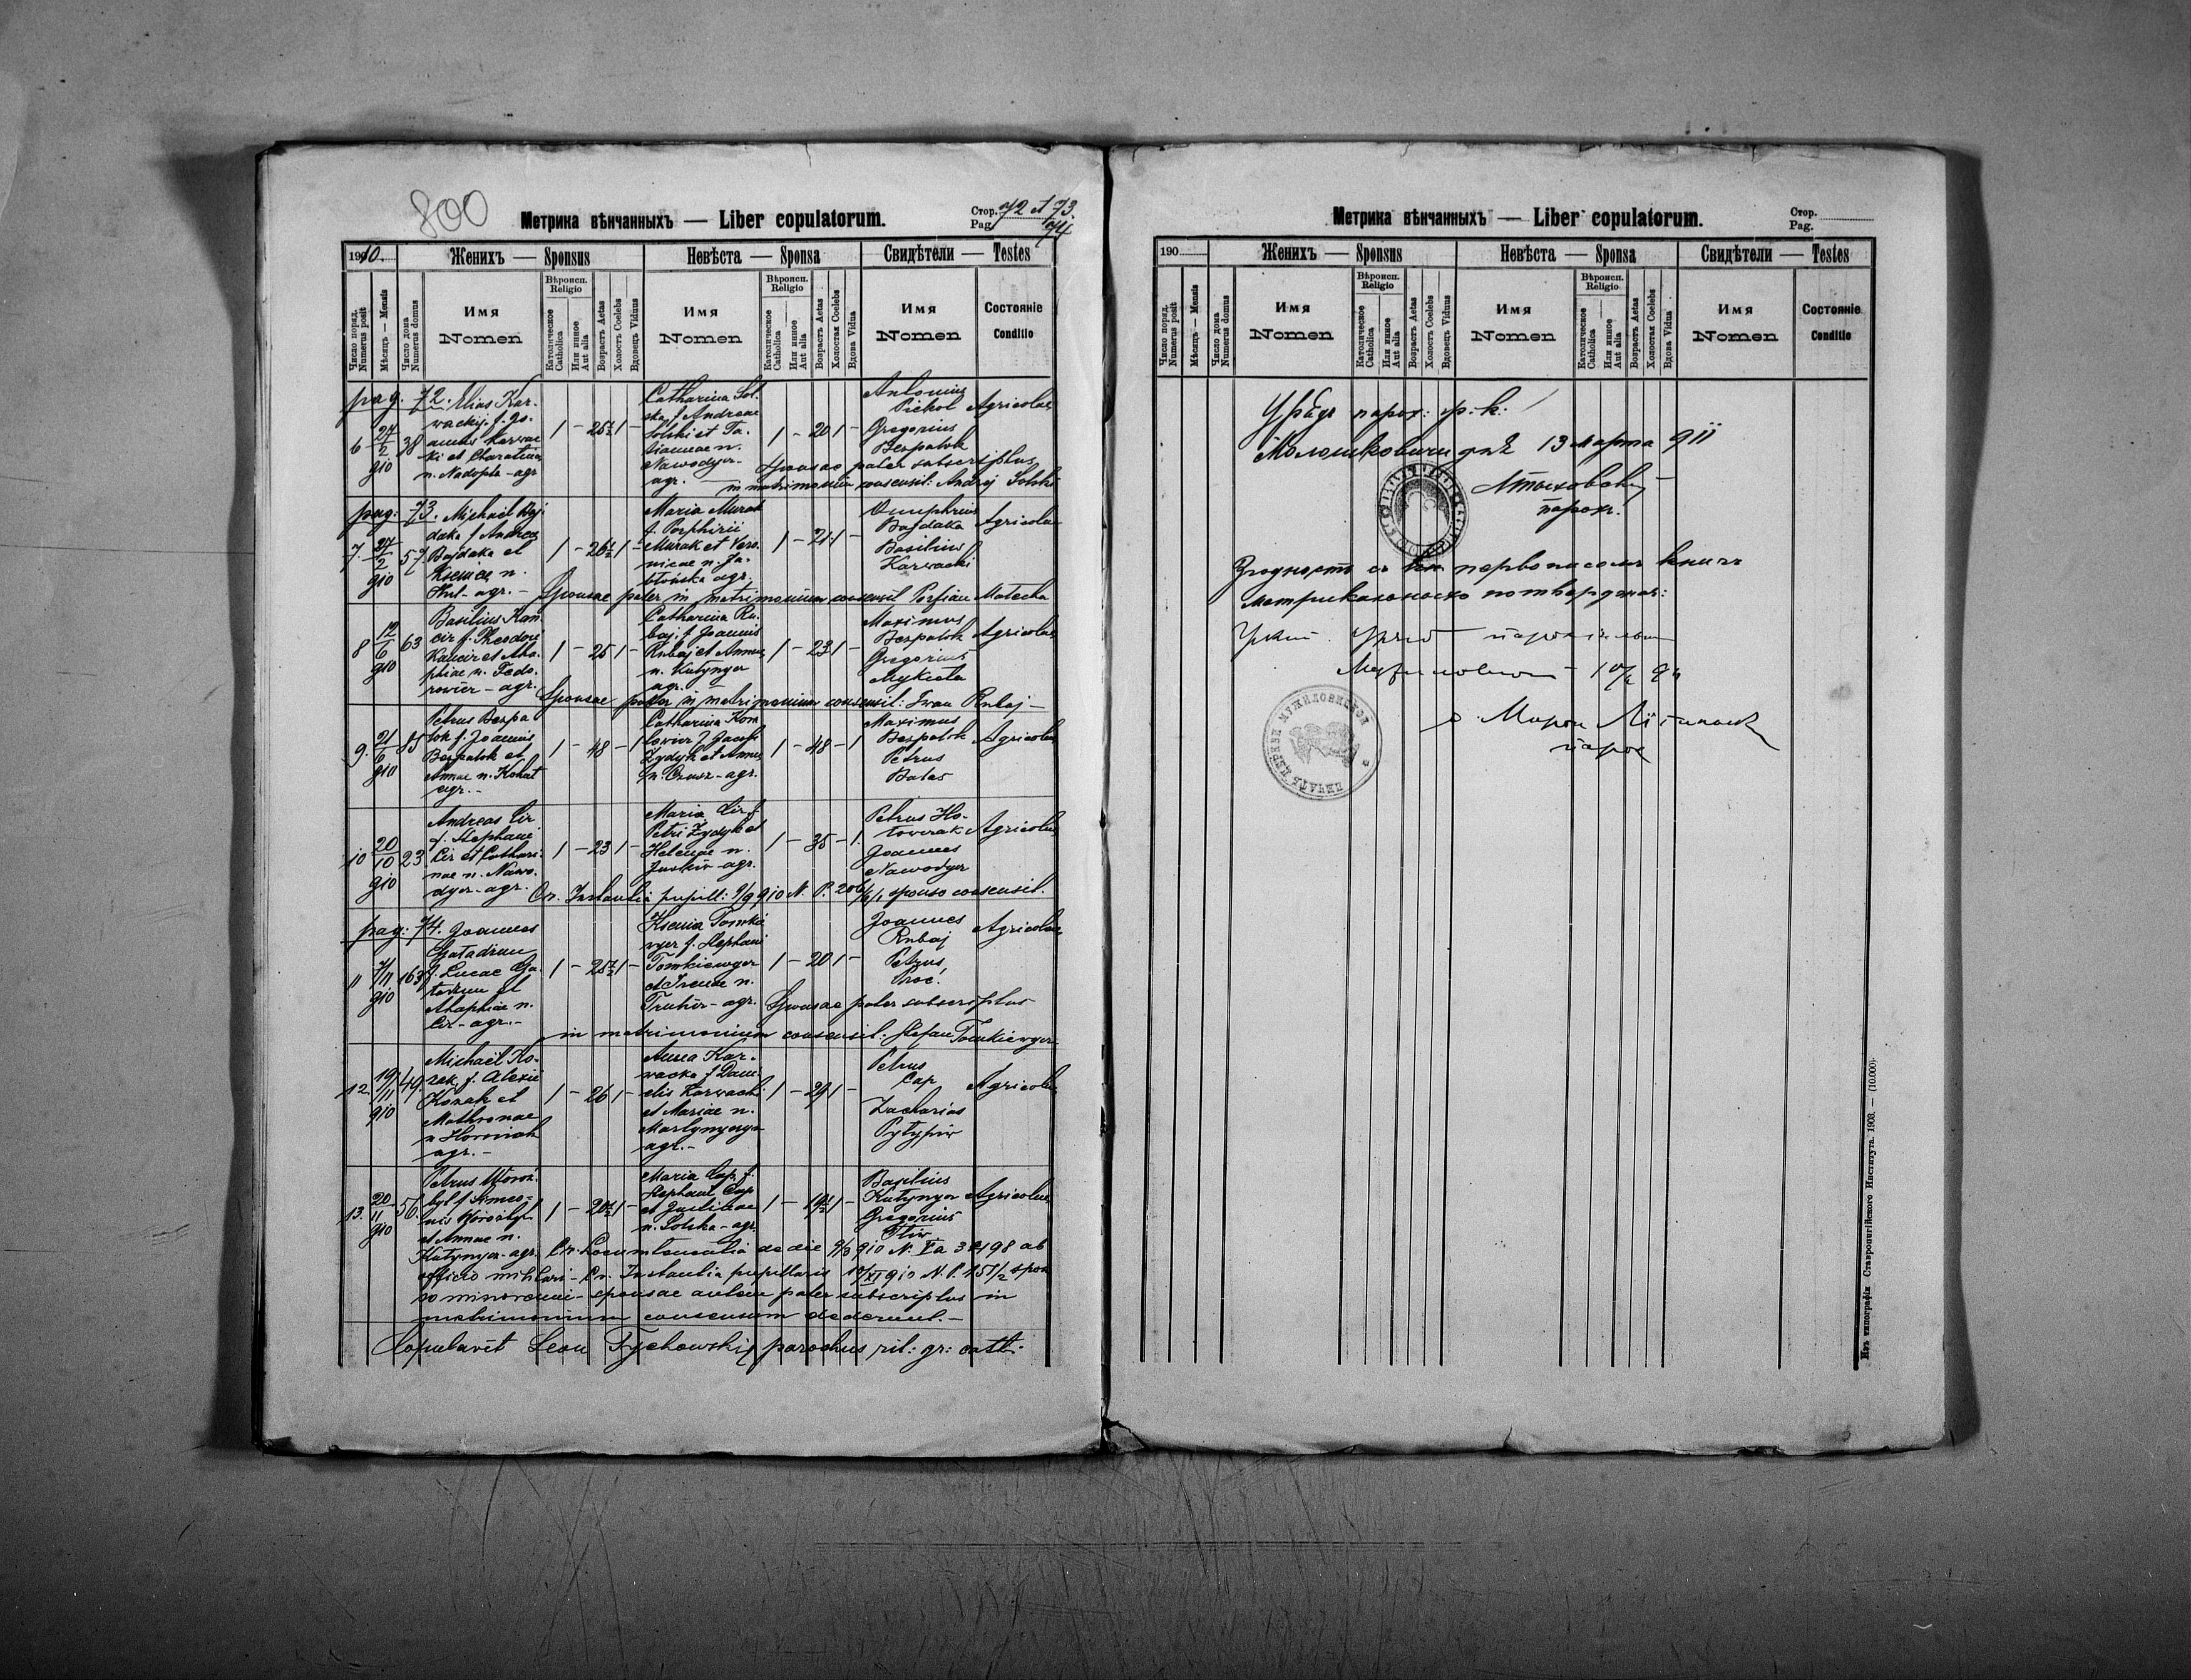 800
Метрика вѣнчанныхъ — Liber copulatorum.
Стор. 72 et 73.
Pag. 74
1910.
Женихъ — Sponsus
Невѣста — Sponsa
Свидѣтели — Testes
Число поряд. Numerus posit
Мѣсяцъ — Mensis
Число дома Numerus domus
Имя
Nomen
Вѣроисп. Religio
Католическое Catholica
Или инное Aut alia
Возрастъ Aetas
Холостъ Coelebs
Вдовецъ Viduus
Имя
Nomen
Вѣроисп. Religio
Католическое Catholica
Или инное Aut alia
Возрастъ Aetas
Холостая Coelebs
Вдова Vidua
Имя
Nomen
Состояніе
Conditio
pag. 72. Elias Kar-
wackij f.
n. Nadopta - agr
1 - 25½ 1 -
Catharina Sol-
ska f. Andreae
Solski et Ta-
tianae n.
Nawodyr-
agr.
1 - 20 1 -
Antonius
Pichol
Gregorius
Bezpalok
Agricolae
6 27/2 910 38
Sponsae pater subscriptus
in matrimonium consensit: Andrej Solski
pag: 73. Michael Baj-
daka f Andreae
Bajdaka et
Kseniae n.
Hnt - agr. -
7. 27/2 910 57.
1 - 26½ 1 -
Maria Murak
f. Porphirii
Murak et Vero-
nicae n. Ja-
błońska agr.
1 - 21 1 -
Onuphrius
Bajdaka
Basilius
Karwacki
Agricolae
Sponsae pater in matrimonium consensit
8 12/6 910 63
Basilius Kan-
cir f. Theodori
Kancir et Aha-
phiae n. Fedo-
rowicz - agr.
1 - 25 1 -
Catharina Ru-
baj f. Joannis
Rubaj et Annae
n. Kutynya
agr.
1 - 23 1 -
Maximus
Bezpalok
Gregorius
Mykieta
Agricolae
Sponsae pater in matrimonium consensit: Iwan Rubaj -
9. 21/6 910 85
Petrus Bezpa-
lok f. Joannis
Bezpalok et
Annae n. Kohut
agr. -
1 - 48 - 1
Zydyk et Annae
agr.
1 - 48 - 1
Maximus
Bezpalok
Petrus
Bales
Agricolae
10 20/10 910 23
Andreas Cir
f. Stephani
Cir et Cathari-
nae n. Nawo-
dyr - agr.
1 - 23 1 -
Maria Cir f.
Petri Zydyk et
Helenae n.
Juskiw - agr.
1 - 35 - 1.
Petrus Ho-
lowczak
Joannes
Nawodyr
Agricolae
Cr. Instantia pupill: 9/9 910 N. P. 206/ sponso consensit.
pag: 74. Joannes
f. Lucae
et
Ahaphiae n.
Cir - agr. -
11 7/11 910 163
1 - 25½ 1 -
Ksenia Tomkie-
wycz f. Stephani
Tomkiewycz
et Irenae n.
1 - 20 1 -
Joannes
Rubaj
Petrus
Proć.
Agricolae
Sponsae pater subscriptus
in matrimonium consensit: Stefan Tomkiewycz
12. 19/11 910 49
Michael Ko-
zak f. Alexii
Kozak et
Mathronae
n. Horniak
agr. -
1 - 26 1 -
Anna Kar-
wacka f. Dani-
elis Karwacki
et Mariae n.
agr. -
1 - 29 1 -
Petrus
Cap
Zacharias
Pyłypiw
Agricolae
13. 20/11 910 56.
Petrus Woroz-
byt f. Simeo-
nis Worozbyt
et Annae n.
Kutynya - agr.
1 - 20½ 1 -
Maria Cap f.
Stephani Cap
et Justinae
n. Solska - agr.
1 - 19½ 1 -
Basilius
Kutynya
Gregorius
Agricolae
Cr. Locumtenentia de die 9/9 910 N. Va 3498 ab
officio militari - Cr. Instantia pupillaris 17/XI 910 N. P. 151/2 spon-
so minorenni - sponsae autem pater subscriptus in
matrimonium consensum dederunt. -
Copulavit Leon Tychowskij parochus rit: gr: cath.
Метрика вѣнчанныхъ — Liber copulatorum.
Стор.
Pag.
190
Женихъ — Sponsus
Невѣста — Sponsa
Свидѣтели — Testes
Число поряд. Numerus posit
Мѣсяцъ — Mensis
Число дома Numerus domus
Имя
Nomen
Вѣроисп. Religio
Католическое Catholica
Или инное Aut alia
Возрастъ Aetas
Холостъ Coelebs
Вдовецъ Viduus
Имя
Nomen
Вѣроисп. Religio
Католическое Catholica
Или инное Aut alia
Возрастъ Aetas
Холостая Coelebs
Вдова Vidua
Имя
Nomen
Состояніе
Conditio
Урядъ парох: гр. к.
Молошковичи дня 13 марта 911
парох.
Згодность съ первописомъ книгъ
метрикальныхъ потверджая:
Урядъ парохіяльный
Мужиловичи
ПЕЧАТЬ ЦЕРКВИ МУЖИЛОВИСКОЙ
о. Мирон
парох
Изъ типографіи Ставропигійского Института. 1908. — (10.000).